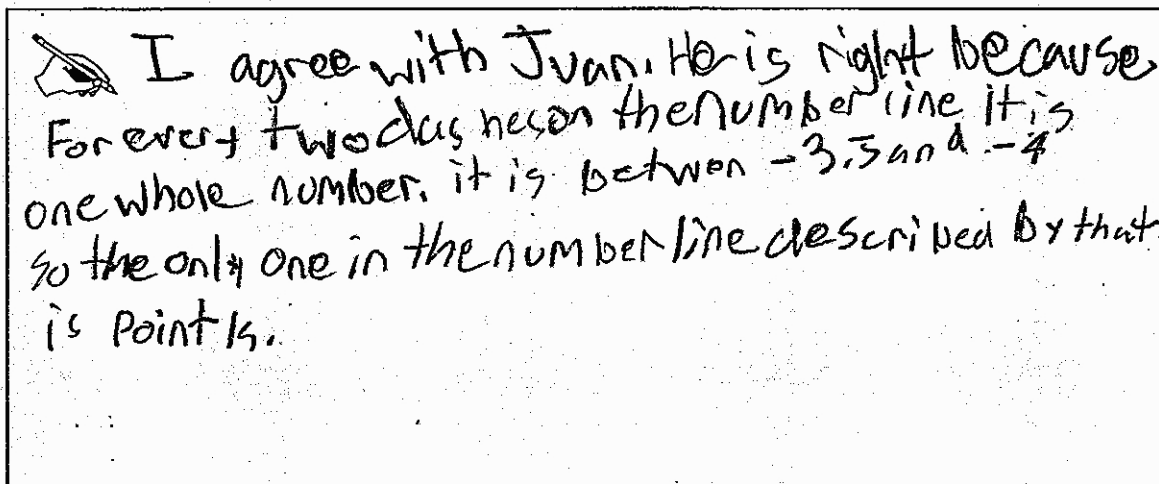 I agree with Juan. He is right because
For every two dashes on the number line it is
one whole number. it is betwen -3.5 and -4
so the only one in the number line described by that
is Point K.